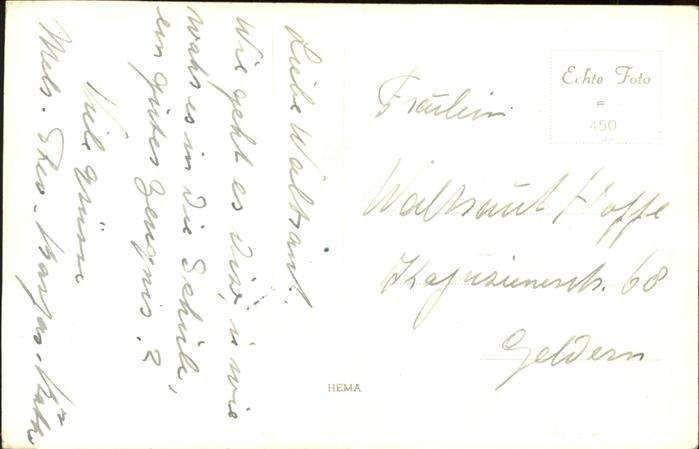 Liebe Waltraut.
Wie geht es Dir, u wie
wahr es in die Schule,
ein gutes Zeugnis?
Viele grüsse
Theo.
Echte Foto
=
450
Fräulein
Waltraut Hoffe
Kapuzinerstr. 68
Geldern
HEMA